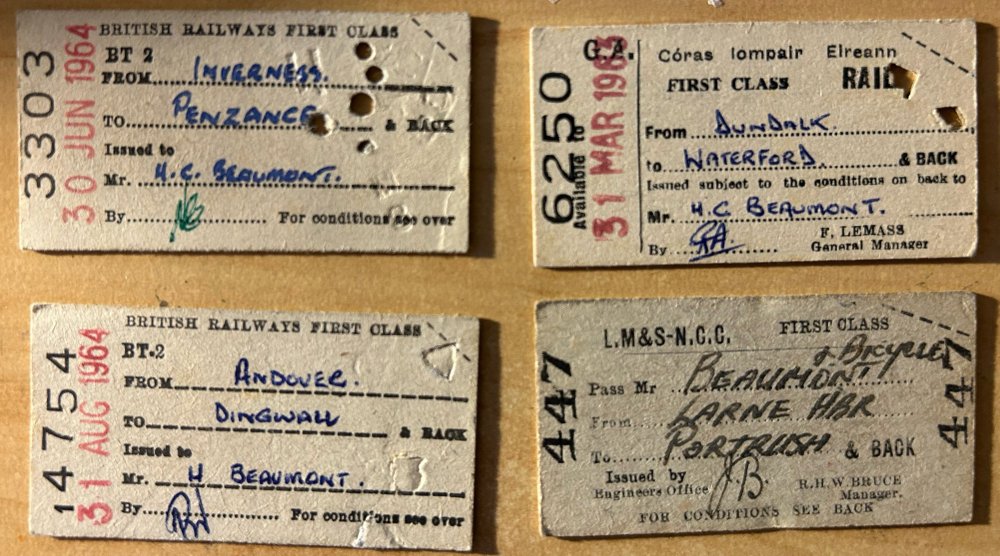 3303
30 JUN 1964
BRITISH RAILWAYS FIRST CLASS
BT 2
FROM INVERNESS.
TO PENZANCE & BACK
Issued to
Mr. H.C. BEAUMONT.
By For conditions see over
6250
Available to
31 MAR 1963
G.A. Córas Iompair Éireann
FIRST CLASS RAIL
From DUNDALK
to WATERFORD & BACK
Issued subject to the conditions on back to
Mr. H C BEAUMONT.
F. LEMASS
By General Manager
14754
31 AUG 1964
BRITISH RAILWAYS FIRST CLASS
BT-2
FROM ANDOVER.
TO DINGWALL
& BACK
Issued to
Mr. H BEAUMONT.
By For conditions see over
447
L.M&S-N.C.C. FIRST CLASS
& BICYCLE
Pass Mr BEAUMONT
From LARNE HBR
To PORTRUSH & BACK
Issued by
Engineers Office J.B. R.H.W. BRUCE
Manager.
FOR CONDITIONS SEE BACK
447